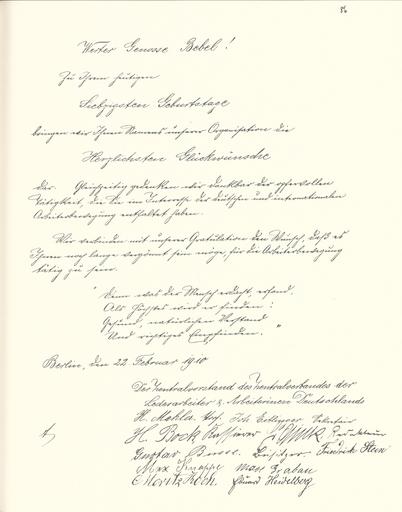 86
Werter Genosse Bebel!
Zu Ihrem heutigen
Siebzigsten Geburtstage
bringen wir Ihnen Namens unserer Organisation die
Herzlichsten Glückwünsche
dar. Gleichzeitig gedenken wir dankbar der opfervollen
Tätigkeit, die Sie im Interesse der deutschen und internationalen
Arbeiterbewegung entfaltet haben.
Wir verbinden mit unserer Gratulation den Wunsch, daß es
Ihnen noch lange vergönnt sein möge, für die Arbeiterbewegung
tätig zu sein.
"Denn was der Mensch erfand,
Als Höchstes wird er finden:
Gesund, natürlichen Verstand
Und richtiges Empfinden."
Berlin, den 22 Februar 1910
Der Zentralvorstand des Zentralverbandes der
Lederarbeiter u. Arbeiterinnen Deutschlands
H. Mahler, Vors. Joh. Sekretär
H. Bock Kassierer Redakteur
Gustav Beisitzer. Friedrich Stein
Max Max Grabau
Moritz Koch. Eduard Heidelberg